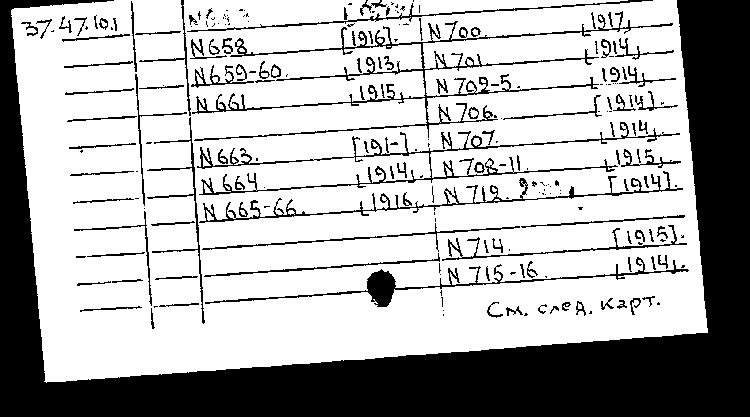 37.47.10.1
N658. [1916].
N659-60. ⌊1913⌋
N661. ⌊1915⌋
N663. [191-]
N664 ⌊1914⌋
N665-66. ⌊1916⌋
N700. ⌊1917⌋
N701. ⌊1914⌋
N702-5. ⌊1914⌋
N706. [1914].
N707. ⌊1914⌋
N708-11. ⌊1915⌋
N712. [1914].
N714. [1915].
N715-16. ⌊1914⌋.
См. след. карт.